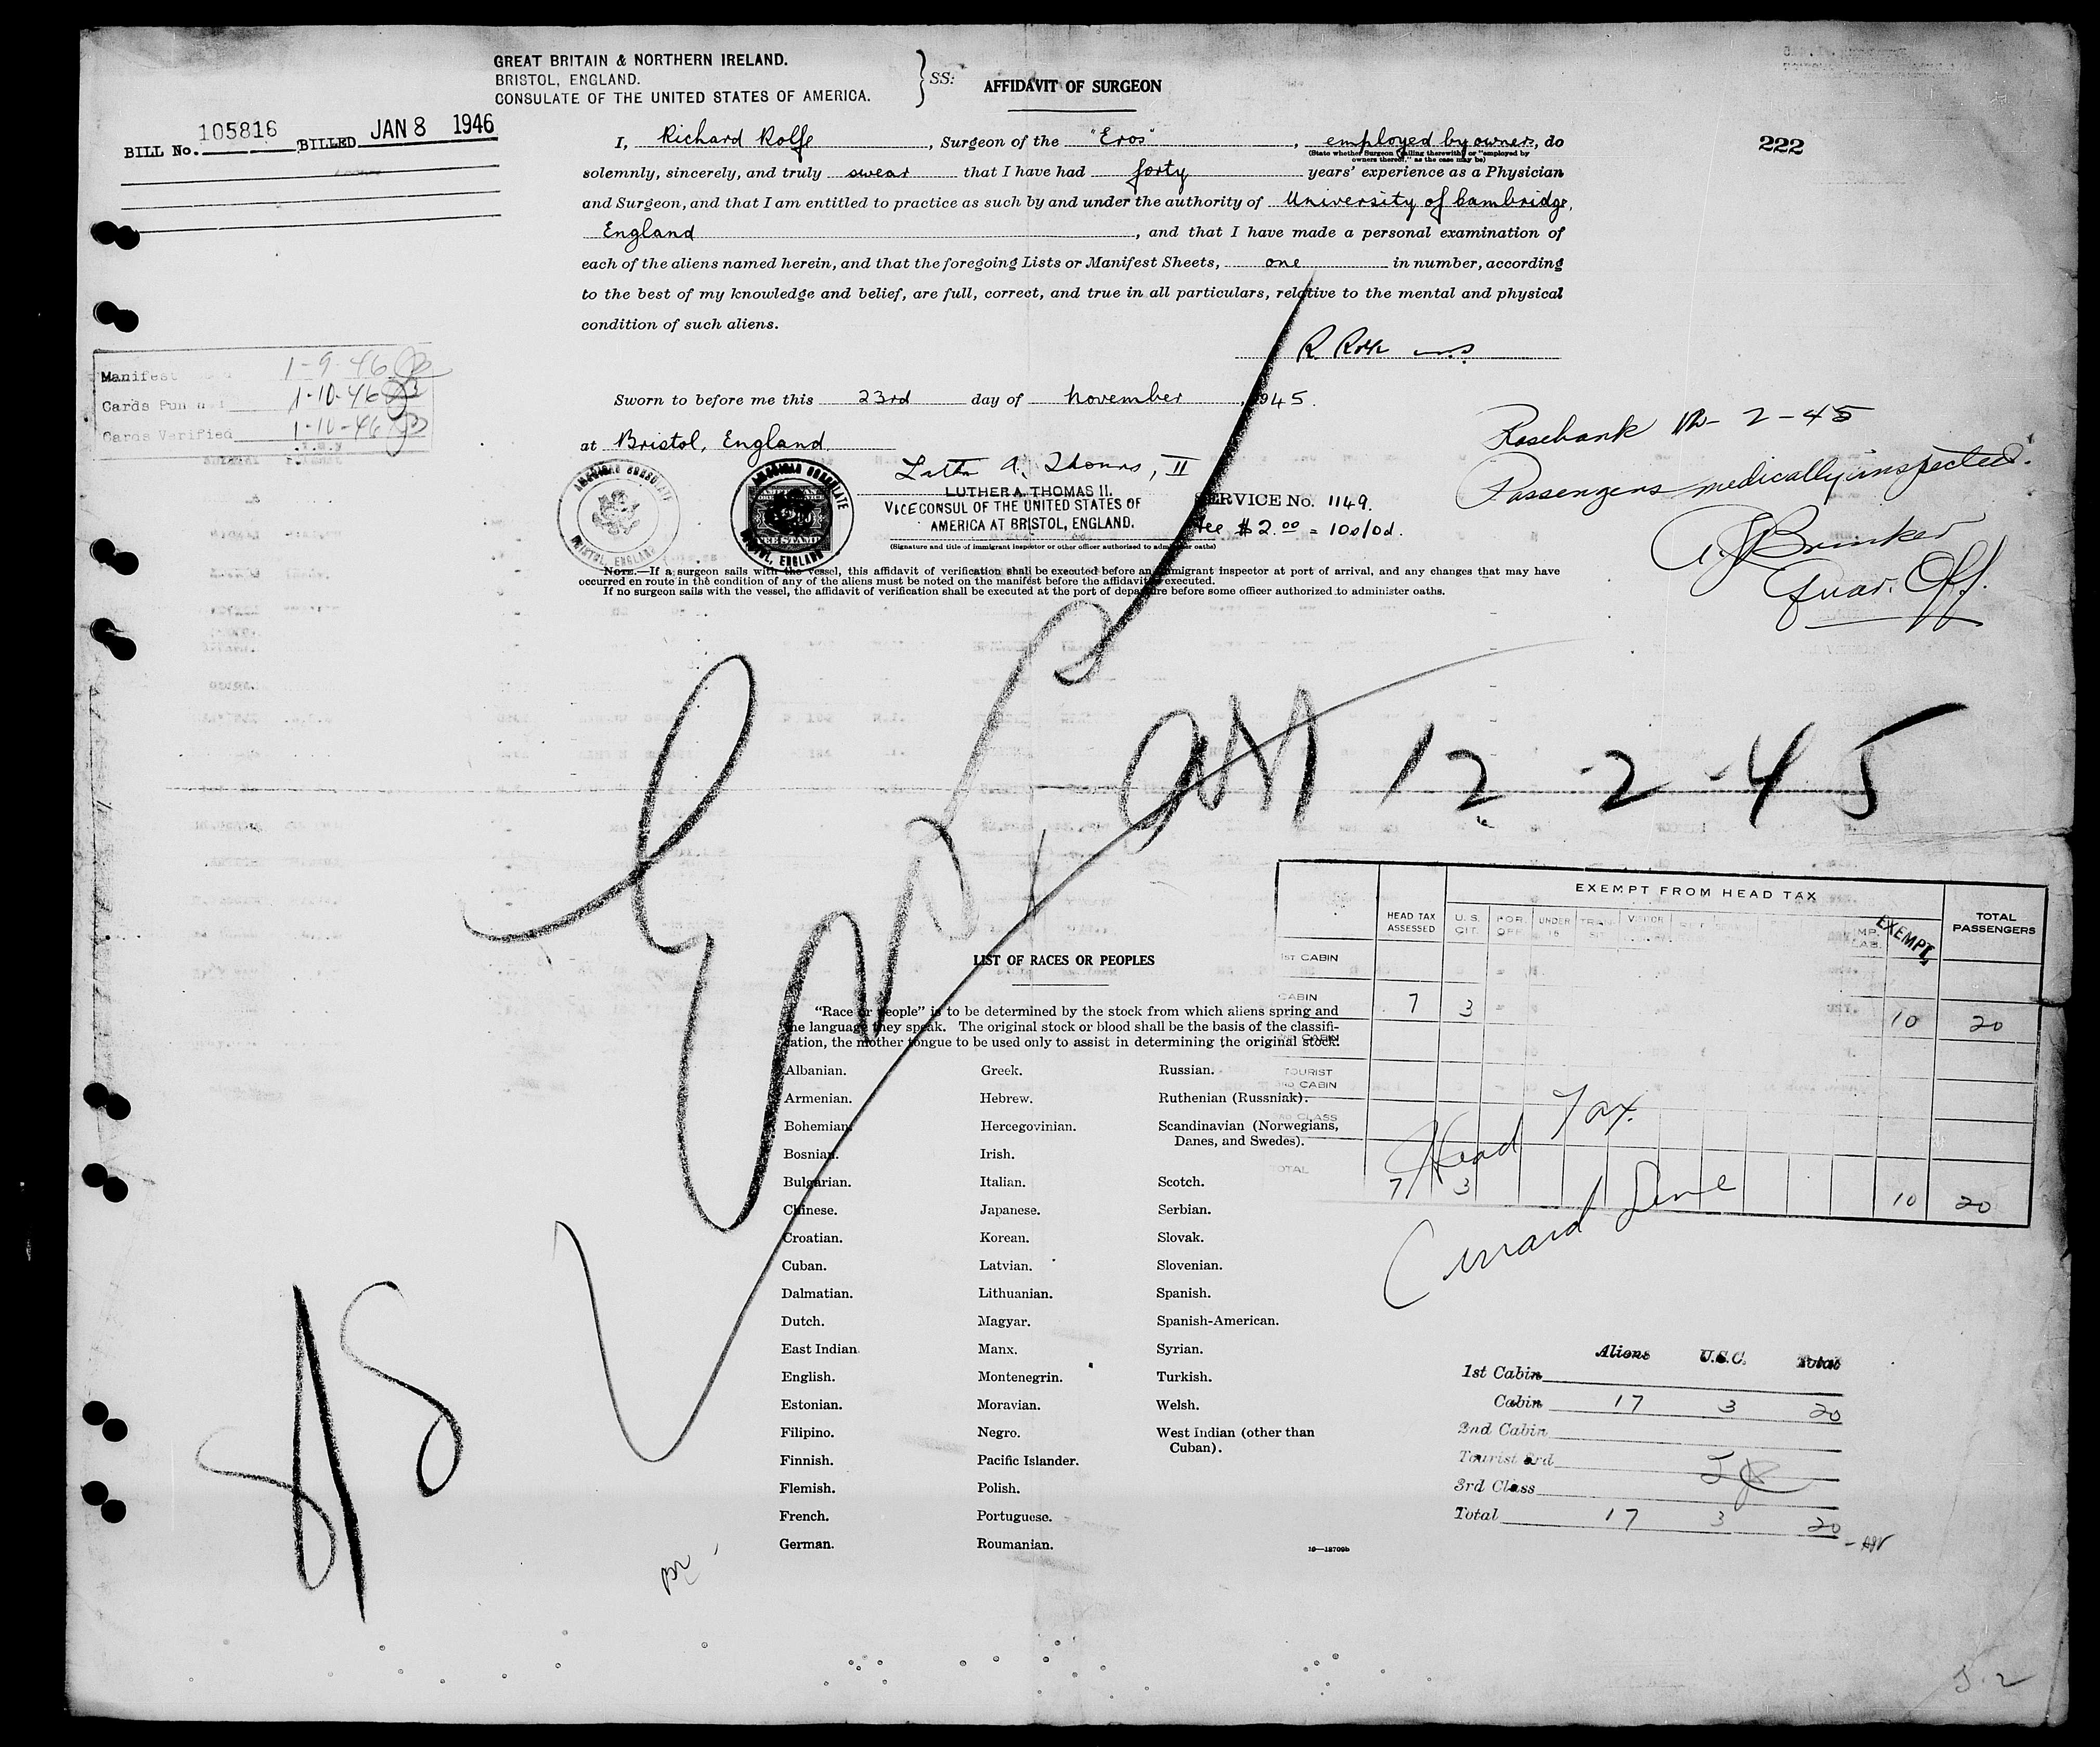 GREAT BRITAIN & NORTHERN IRELAND.
BRISTOL, ENGLAND.
CONSULATE OF THE UNITED STATES OF AMERICA.
} SS:
AFFIDAVIT OF SURGEON
BILL No. 105816 BILLED JAN 8 1946
222
I, Richard Rolfe, Surgeon of the "Eros", employed by owners, do
(State whether Surgeon sailing therewith or "employed by
owners thereof," as the case may be)
solemnly, sincerely, and truly swear that I have had forty years' experience as a Physician
and Surgeon, and that I am entitled to practice as such by and under the authority of University of Cambridge,
England, and that I have made a personal examination of
each of the aliens named herein, and that the foregoing Lists or Manifest Sheets, one in number, according
to the best of my knowledge and belief, are full, correct, and true in all particulars, relative to the mental and physical
condition of such aliens.
R. Rolfe
Manifest 1-9-46
Cards Pun 1-10-46
Cards Verified 1-10-46
Sworn to before me this 23rd day of November, 1945.
at Bristol, England
AMERICAN CONSULATE
BRISTOL, ENGLAND
AMERICAN CONSULATE
BRISTOL, ENGLAND
FEE STAMP
Luther A. Thomas, II
LUTHER A. THOMAS II.
VICE CONSUL OF THE UNITED STATES OF
AMERICA AT BRISTOL, ENGLAND.
(Signature and title of immigrant inspector or other officer authorized to administer oaths)
SERVICE No. 1149.
Fee $2.00 = 10s/0d.
Rosebank 12-2-45
Passengers medically inspected.
Brinker
Quar. Off.
NOTE.—If a surgeon sails with the vessel, this affidavit of verification shall be executed before an immigrant inspector at port of arrival, and any changes that may have
occurred en route in the condition of any of the aliens must be noted on the manifest before the affidavit is executed.
If no surgeon sails with the vessel, the affidavit of verification shall be executed at the port of departure before some officer authorized to administer oaths.
12-2-45
EXEMPT FROM HEAD TAX
HEAD TAX ASSESSED
U. S. CIT.
FOR. OFF.
UNDER 16
VISITOR
EXEMPT
TOTAL PASSENGERS
1ST CABIN
CABIN 7 3 10 20
TOURIST
3RD CABIN
TOTAL 7 3 10 20
Head Tax.
Cunard Line
LIST OF RACES OR PEOPLES
"Race or people" is to be determined by the stock from which aliens spring and
the language they speak. The original stock or blood shall be the basis of the classifi-
cation, the mother tongue to be used only to assist in determining the original stock.
Albanian.
Armenian.
Bohemian.
Bosnian.
Bulgarian.
Chinese.
Croatian.
Cuban.
Dalmatian.
Dutch.
East Indian
English.
Estonian.
Filipino.
Finnish.
Flemish.
French.
German.
Greek.
Hebrew.
Hercegovinian.
Irish.
Italian.
Japanese.
Korean.
Latvian.
Lithuanian.
Magyar.
Manx.
Montenegrin.
Moravian.
Negro.
Pacific Islander.
Polish.
Portuguese.
Roumanian.
Russian.
Ruthenian (Russniak).
Scandinavian (Norwegians,
Danes, and Swedes).
Scotch.
Serbian.
Slovak.
Slovenian.
Spanish.
Spanish-American.
Syrian.
Turkish.
Welsh.
West Indian (other than
Cuban).
Aliens U.S.C. Total
1st Cabin
Cabin 17 3 20
2nd Cabin
Tourist 3rd
3rd Class
Total 17 3 20
16—18709b